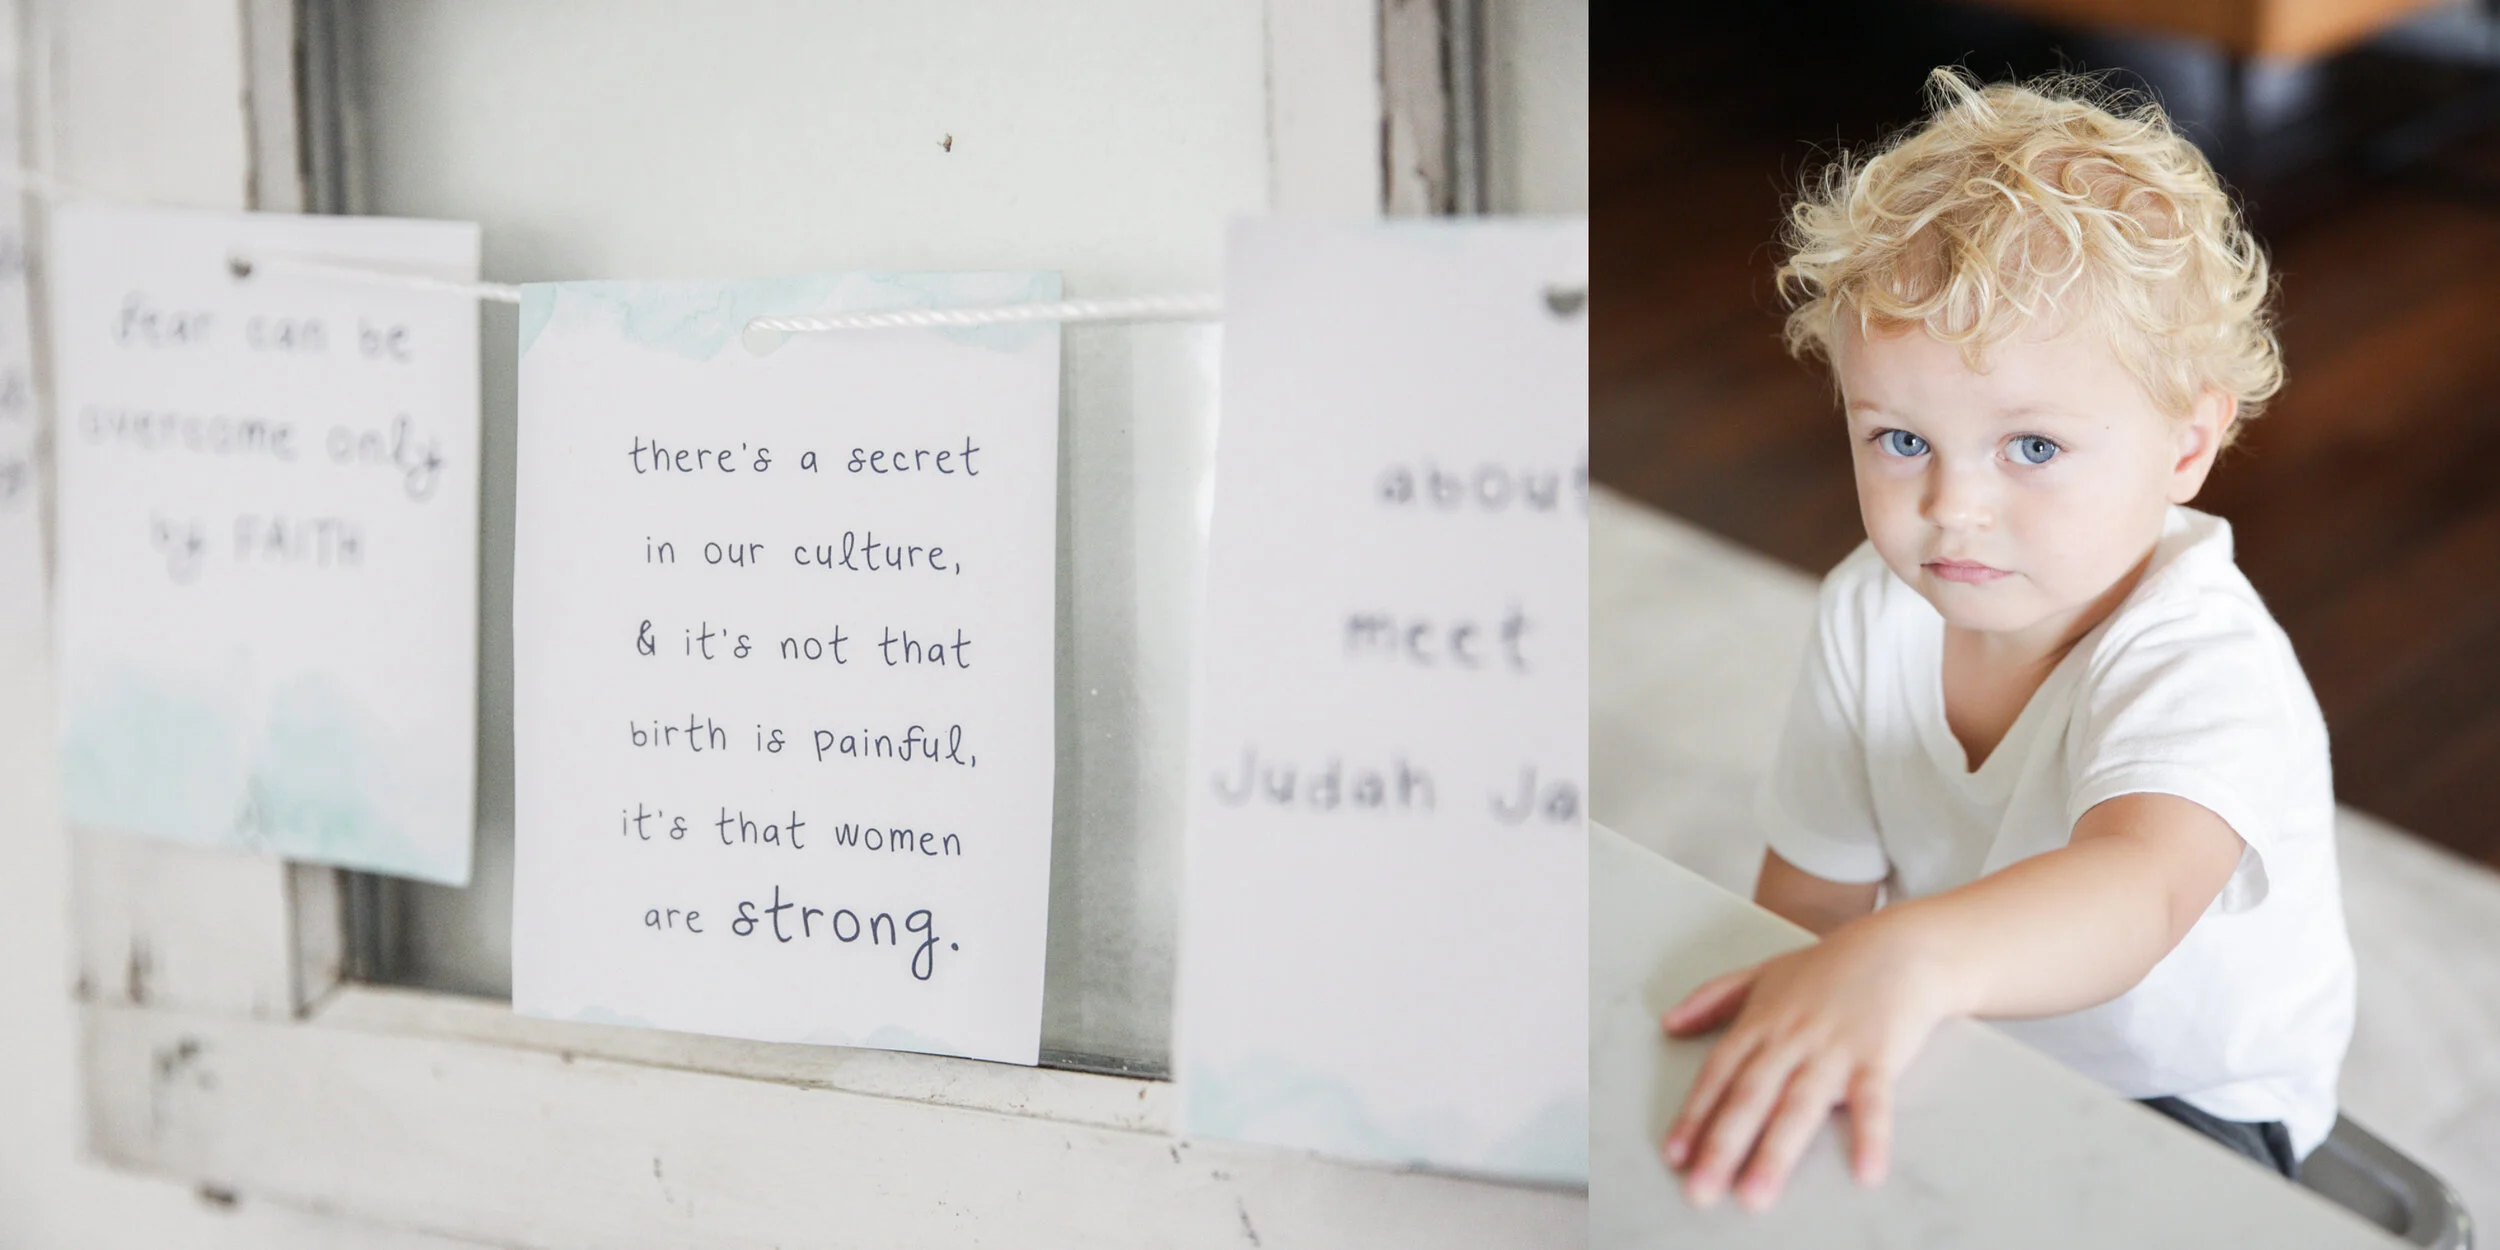 fear can be
overcome only
by FAITH
there's a secret
in our culture,
& it's not that
birth is painful,
it's that women
are strong.
about
meet
Judah